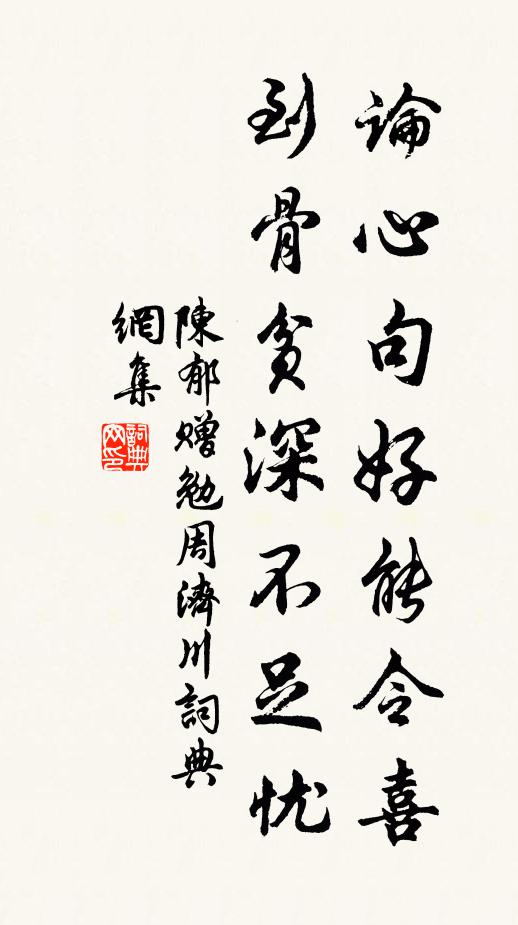 論心句好能令喜
到骨貧深不足忧
陳郁赠勉周濟川詞典
網集
詞典
网印